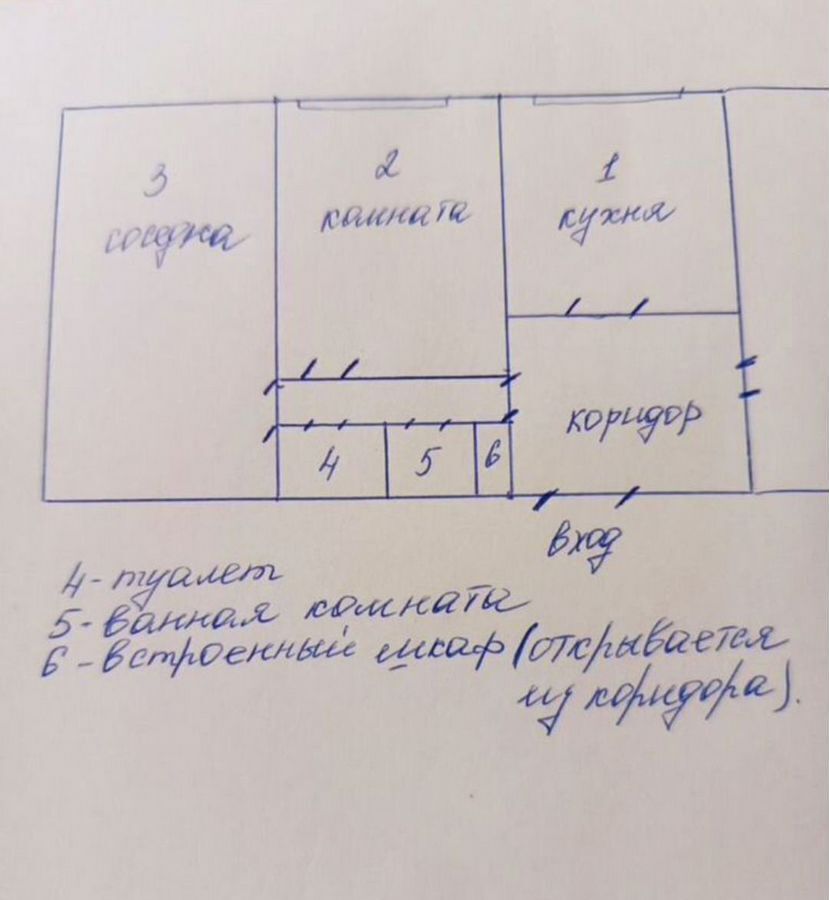 3
соседка
2
комната
1
кухня
коридор
4
5
6
вход
4 - туалет
5 - ванная комната
6 - встроенный шкаф (открывается
из коридора).